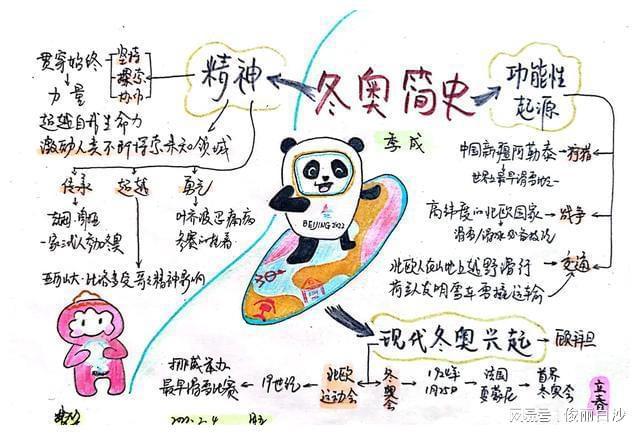 冬奥简史
李成
精神
贯穿始终
坚持
探索
力量
超越自我生命力
激励人类不断探索未知领域
传承
超越
勇气
一家三代人参加冬奥
功能性
起源
中国新疆阿勒泰
狩猎
世界最早滑雪地
高纬度的北欧国家
战争
北欧人在山地上越野滑行
交通
荷兰人发明雪车雪橇运输
BEIJING 2022
现代冬奥兴起
顾拜旦
挪威举办
最早滑雪比赛
19世纪
北欧
运动会
冬
奥
会
1924年
1月25日
法国
夏蒙尼
首界
冬奥会
立春
2022.2.4
搜狐号@俊丽白沙